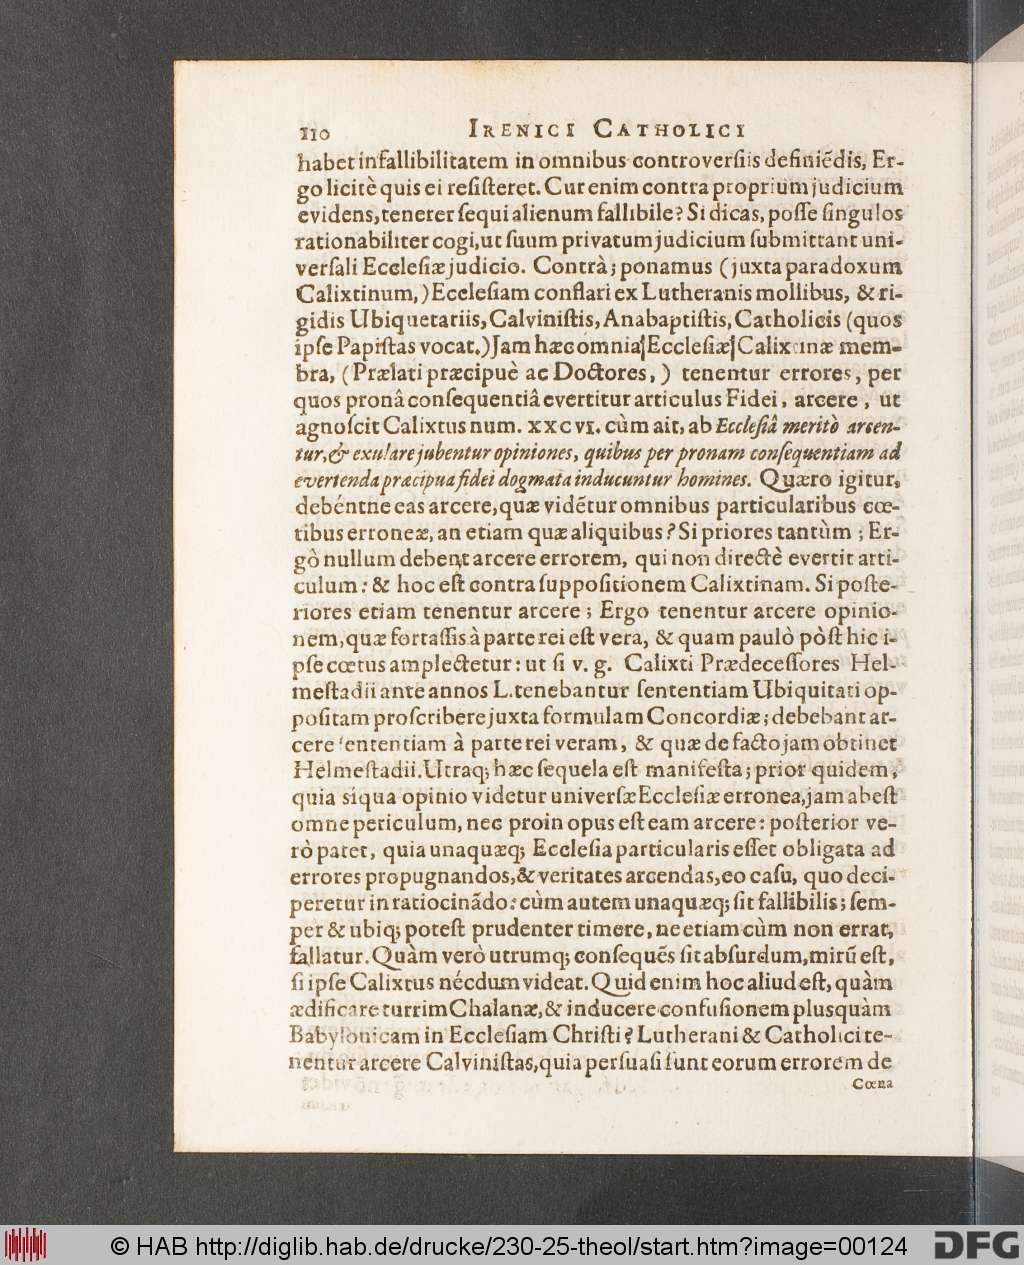 110 IRENICI CATHOLICI
habet infallibilitatem in omnibus controverſiis definiẽdis, Er-
go licitè quis ei reſiſteret. Cur enim contra proprium judicium
evidens, tenerer ſequi alienum fallibile? Si dicas, poſſe ſingulos
rationabiliter cogi, ut ſuum privatum judicium ſubmittant uni-
verſali Eccleſiæ judicio. Contrà; ponamus (juxta paradoxum
Calixtinum,) Eccleſiam conflari ex Lutheranis mollibus, & ri-
gidis Ubiquetariis, Calviniſtis, Anabaptiſtis, Catholicis (quos
ipſe Papiſtas vocat.) Jam hæc omnia Eccleſiæ Calixtinæ mem-
bra, (Prælati præcipuè ac Doctores,) tenentur errores, per
quos pronâ conſequentiâ evertitur articulus Fidei, arcere, ut
agnoſcit Calixtus num. XXCVI. cùm ait, ab Eccleſiâ meritò arcen-
tur, & exulare jubentur opiniones, quibus per pronam conſequentiam ad
evertenda præcipua fidei dogmata inducuntur homines. Quæro igitur,
debéntne eas arcere, quæ vidẽtur omnibus particularibus cœ-
tibus erroneæ, an etiam quæ aliquibus? Si priores tantùm; Er-
gò nullum debent arcere errorem, qui non directè evertit arti-
culum: & hoc eſt contra ſuppoſitionem Calixtinam. Si poſte-
riores etiam tenentur arcere; Ergo tenentur arcere opinio-
nem, quæ fortaſſis à parte rei eſt vera, & quam paulò pòſt hic i-
pſe cœtus amplectetur: ut ſi v. g. Calixti Prædeceſſores Hel-
meſtadii ante annos L. tenebantur ſententiam Ubiquitati op-
poſitam proſcribere juxta formulam Concordiæ; debebant ar-
cere ſententiam à parte rei veram, & quæ de facto jam obtinet
Helmeſtadii. Utraq; hæc ſequela eſt manifeſta; prior quidem,
quia siqua opinio videtur univerſæ Eccleſiæ erronea, jam abeſt
omne periculum, nec proin opus eſt eam arcere: poſterior ve-
rò patet, quia unaquæq; Eccleſia particularis eſſet obligata ad
errores propugnandos, & veritates arcendas, eo caſu, quo deci-
peretur in ratiocinãdo: cùm autem unaquæq; ſit fallibilis; ſem-
per & ubiq; poteſt prudenter timere, ne etiam cùm non errat,
fallatur. Quàm verò utrumq; conſequẽs ſit abſurdum, mirũ eſt,
ſi ipſe Calixtus nécdum videat. Quid enim hoc aliud eſt, quàm
ædificare turrim Chalanæ, & inducere confuſionem pluſquàm
Babylonicam in Eccleſiam Chriſti? Lutherani & Catholici te-
nentur arcere Calviniſtas, quia perſuaſi ſunt eorum errorem de
Cœna
© HAB http://diglib.hab.de/drucke/230-25-theol/start.htm?image=00124 DFG